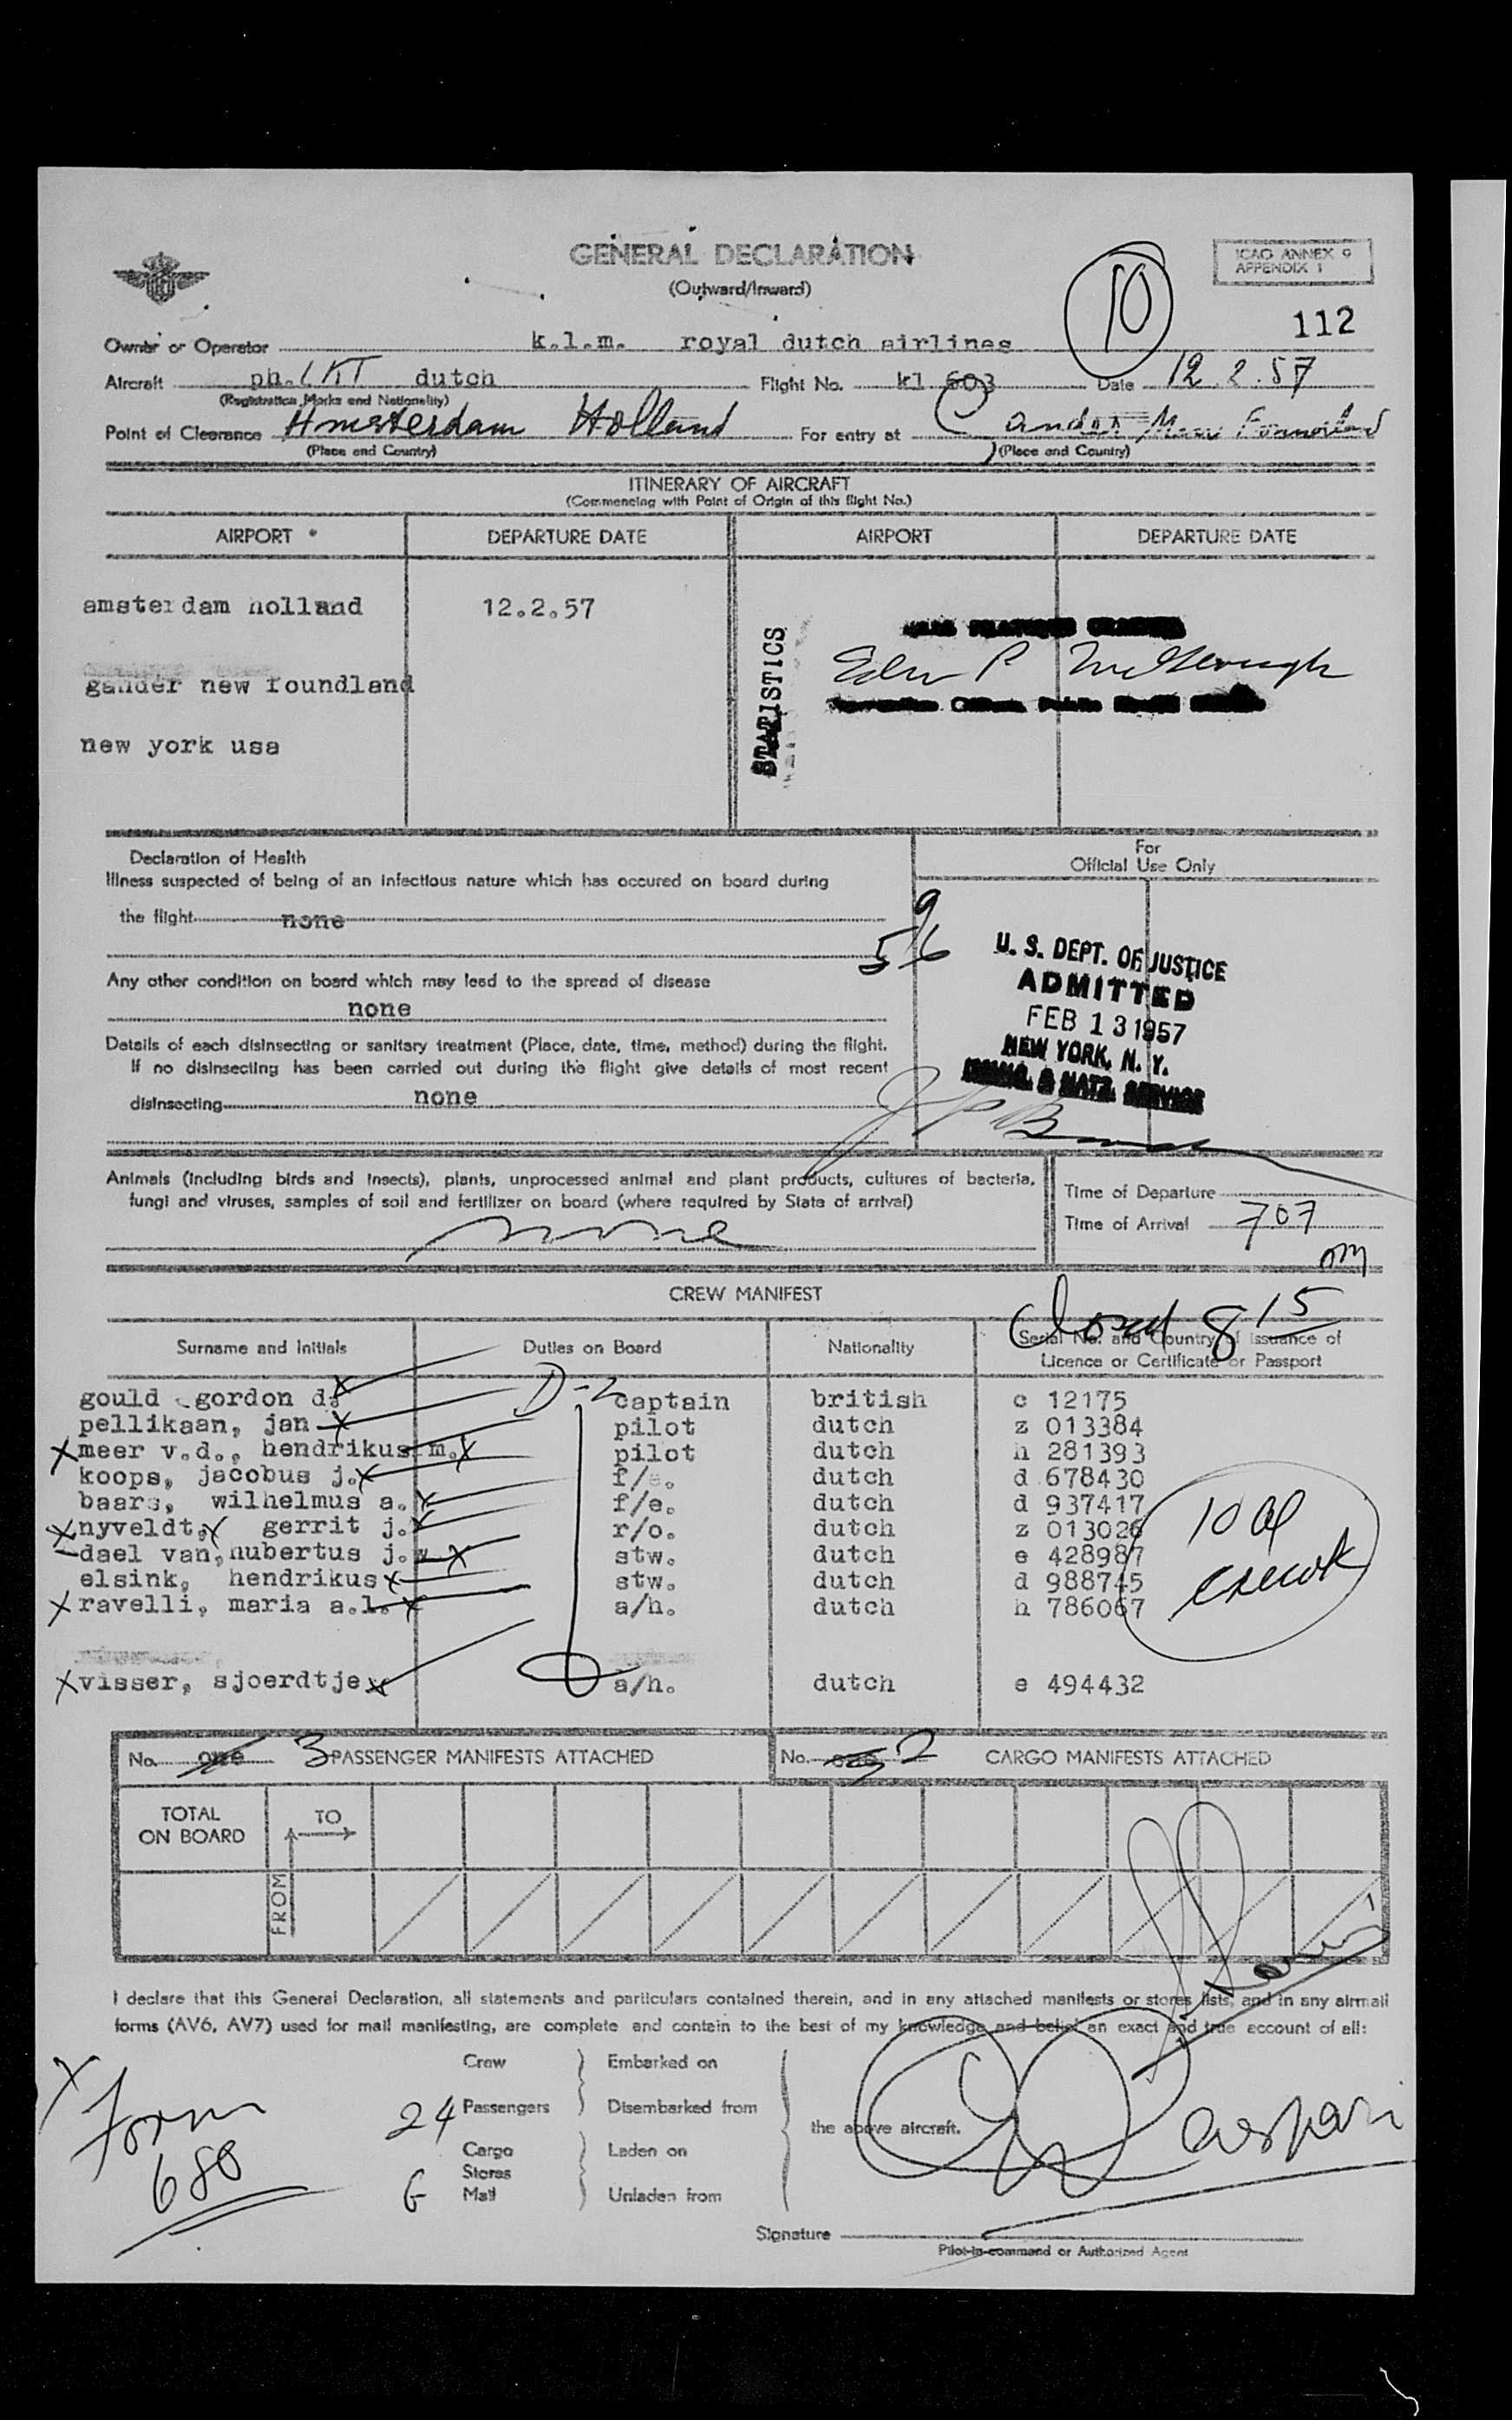 GENERAL DECLARATION
(Outward/Inward)
ICAO ANNEX 9
APPENDIX 1
10
112
Owner or Operator k.l.m. royal dutch airlines
Aircraft ph.LKT dutch Flight No. kl 603 Date 12.2.57
(Registration Marks and Nationality)
Point of Clearance Amsterdam Holland For entry at Gander New
(Place and Country) (Place and Country)
ITINERARY OF AIRCRAFT
(Commencing with Point of Origin of this flight No.)
AIRPORT DEPARTURE DATE AIRPORT DEPARTURE DATE
amsterdam holland 12.2.57
STATISTICS
gander new foundland
new york usa
Declaration of Health
For
Official Use Only
Illness suspected of being of an infectious nature which has occured on board during
the flight none
9
5/6
Any other condition on board which may lead to the spread of disease
none
U. S. DEPT. OF JUSTICE
ADMITTED
FEB 13 1957
NEW YORK, N. Y.
IMMIG. & NATZ. SERVICE
Details of each disinsecting or sanitary treatment (Place, date, time, method) during the flight.
If no disinsecting has been carried out during the flight give details of most recent
disinsecting none
Animals (including birds and insects), plants, unprocessed animal and plant products, cultures of bacteria,
fungi and viruses, samples of soil and fertilizer on board (where required by State of arrival)
none
Time of Departure
Time of Arrival 707
CREW MANIFEST
Closed 8 15
Surname and Initials Duties on Board Nationality Serial No. and Country of Issuance of
Licence or Certificate or Passport
D-2
gould gordon d. captain british c 12175
pellikaan, jan pilot dutch z 013384
x meer v.d., hendrikus m. pilot dutch h 281393
koops, jacobus j. f/e. dutch d 678430
baars, wilhelmus a. f/e. dutch d 937417
x nyveldt, gerrit j. r/o. dutch z 013026
dael van, hubertus j.w. stw. dutch e 428987
elsink, hendrikus stw. dutch d 988745
x ravelli, maria a.l. a/h. dutch h 786067
x visser, sjoerdtje a/h. dutch e 494432
10
No. one 3 PASSENGER MANIFESTS ATTACHED No. 2 CARGO MANIFESTS ATTACHED
TOTAL
ON BOARD
TO
FROM
I declare that this General Declaration, all statements and particulars contained therein, and in any attached manifests or stores lists, and in any airmail
forms (AV6, AV7) used for mail manifesting, are complete and contain to the best of my knowledge and belief an exact and true account of all:
Crew Embarked on
24 Passengers Disembarked from
the above aircraft.
Cargo Laden on
Stores
Mail Unladen from
x Form
680
Signature
Pilot-in-command or Authorized Agent